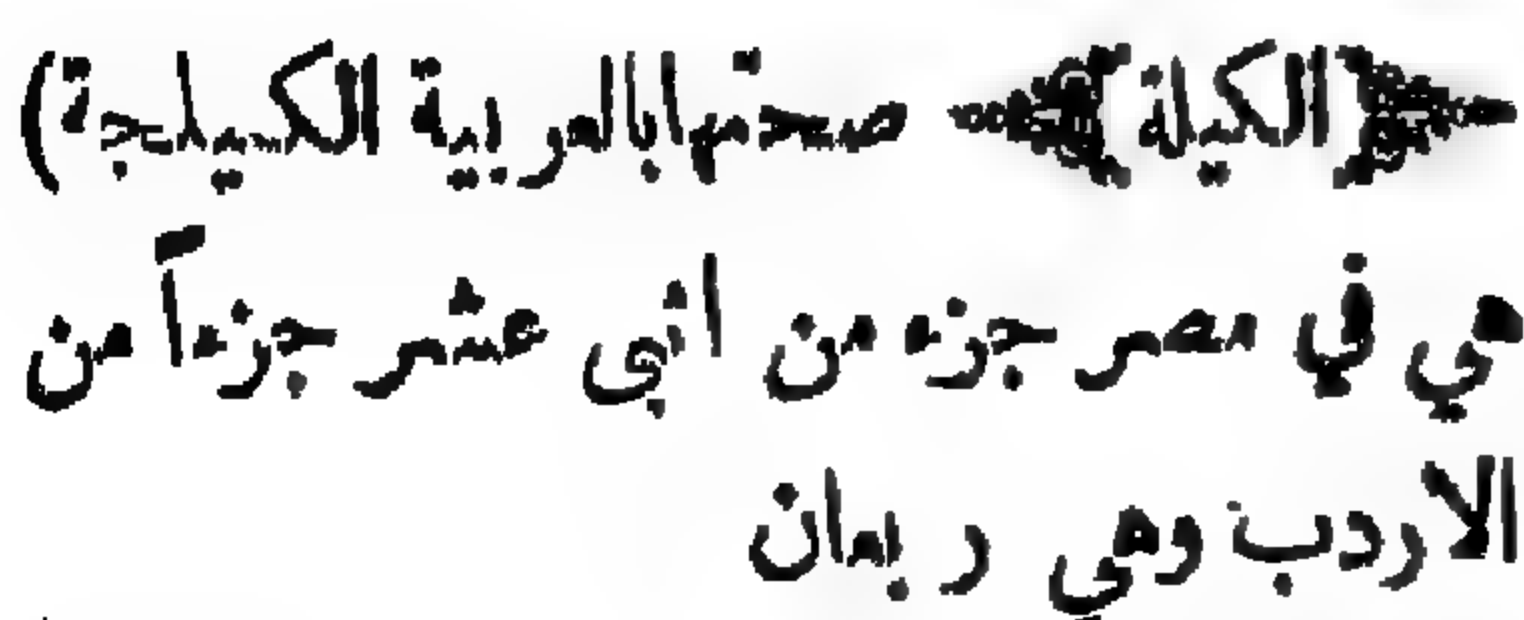 ﴿الكيلة﴾ صحتها بالعربية الكيلجة)
هي في مصر جزء من اثني عشر جزءاً من
الاردب وهي ربعان